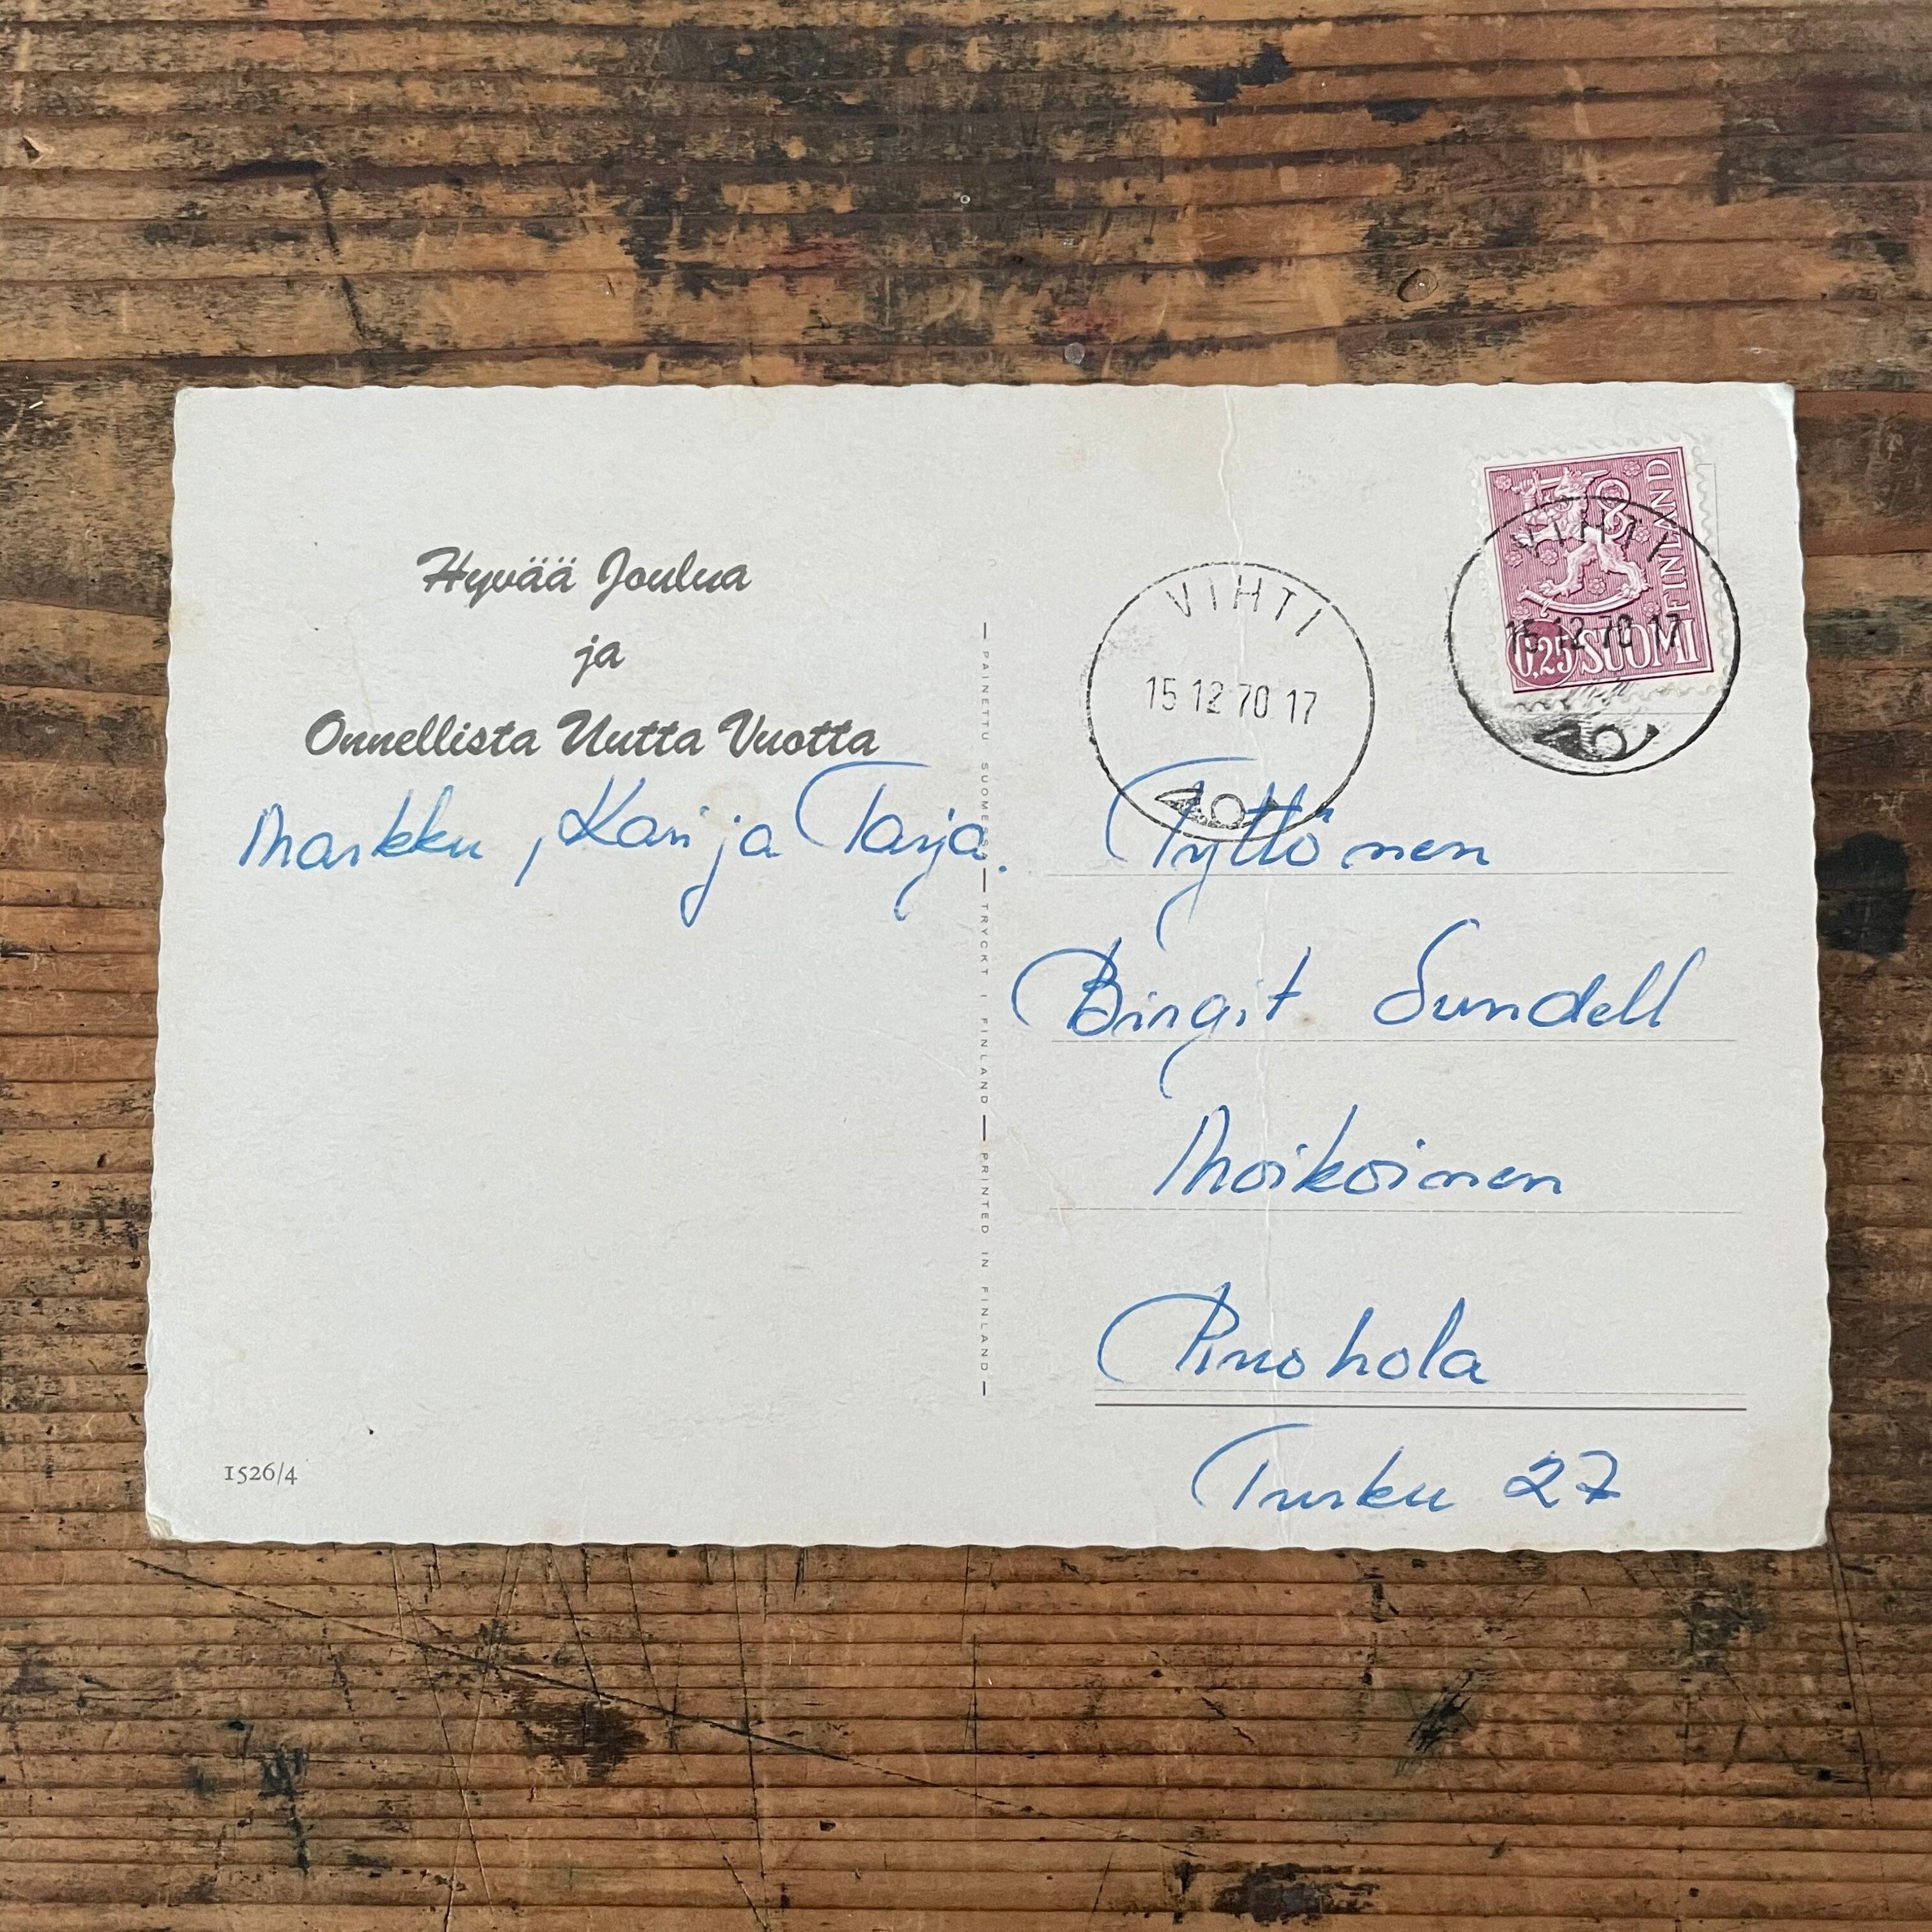 Hyvää Joulua
ja
Onnellista Uutta Vuotta
Markku, Kari ja Tarja.
1526/4
PAINETTU SUOMESSA — TRYCKT I FINLAND — PRINTED IN FINLAND
VIHTI
15 12 70 17
VIHTI
15 12 70 17
FINLAND
0,25 SUOMI
Tyttönen
Birgit Sundell
Moikoinen
Pinohola
Turku 27